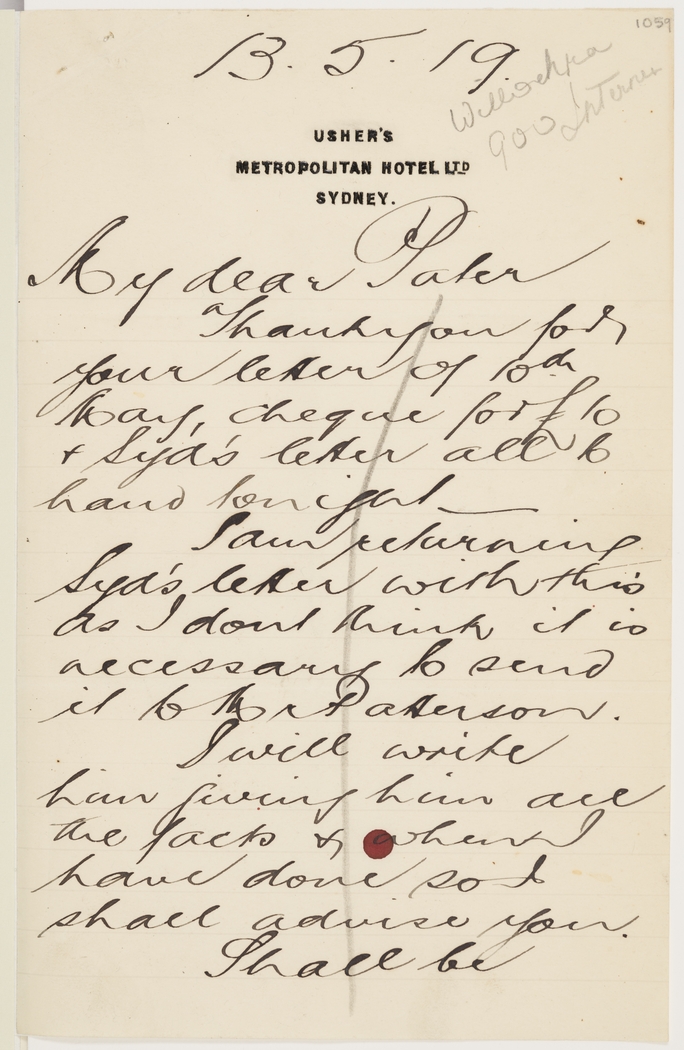 1059
13. 5. 19.
Willochra
900 Interner
USHER'S
METROPOLITAN HOTEL LTD
SYDNEY.
My dear Pater
Thank you for
your letter of 10th
May, cheque for £10
& Syd's letter all to
hand tonight
I am returning
Syd's letter with this
as I dont think it is
necessary to send
it to Mr Patterson.
I will write
him giving him all
the facts & when I
have done so I
shall advise you.
Shall be